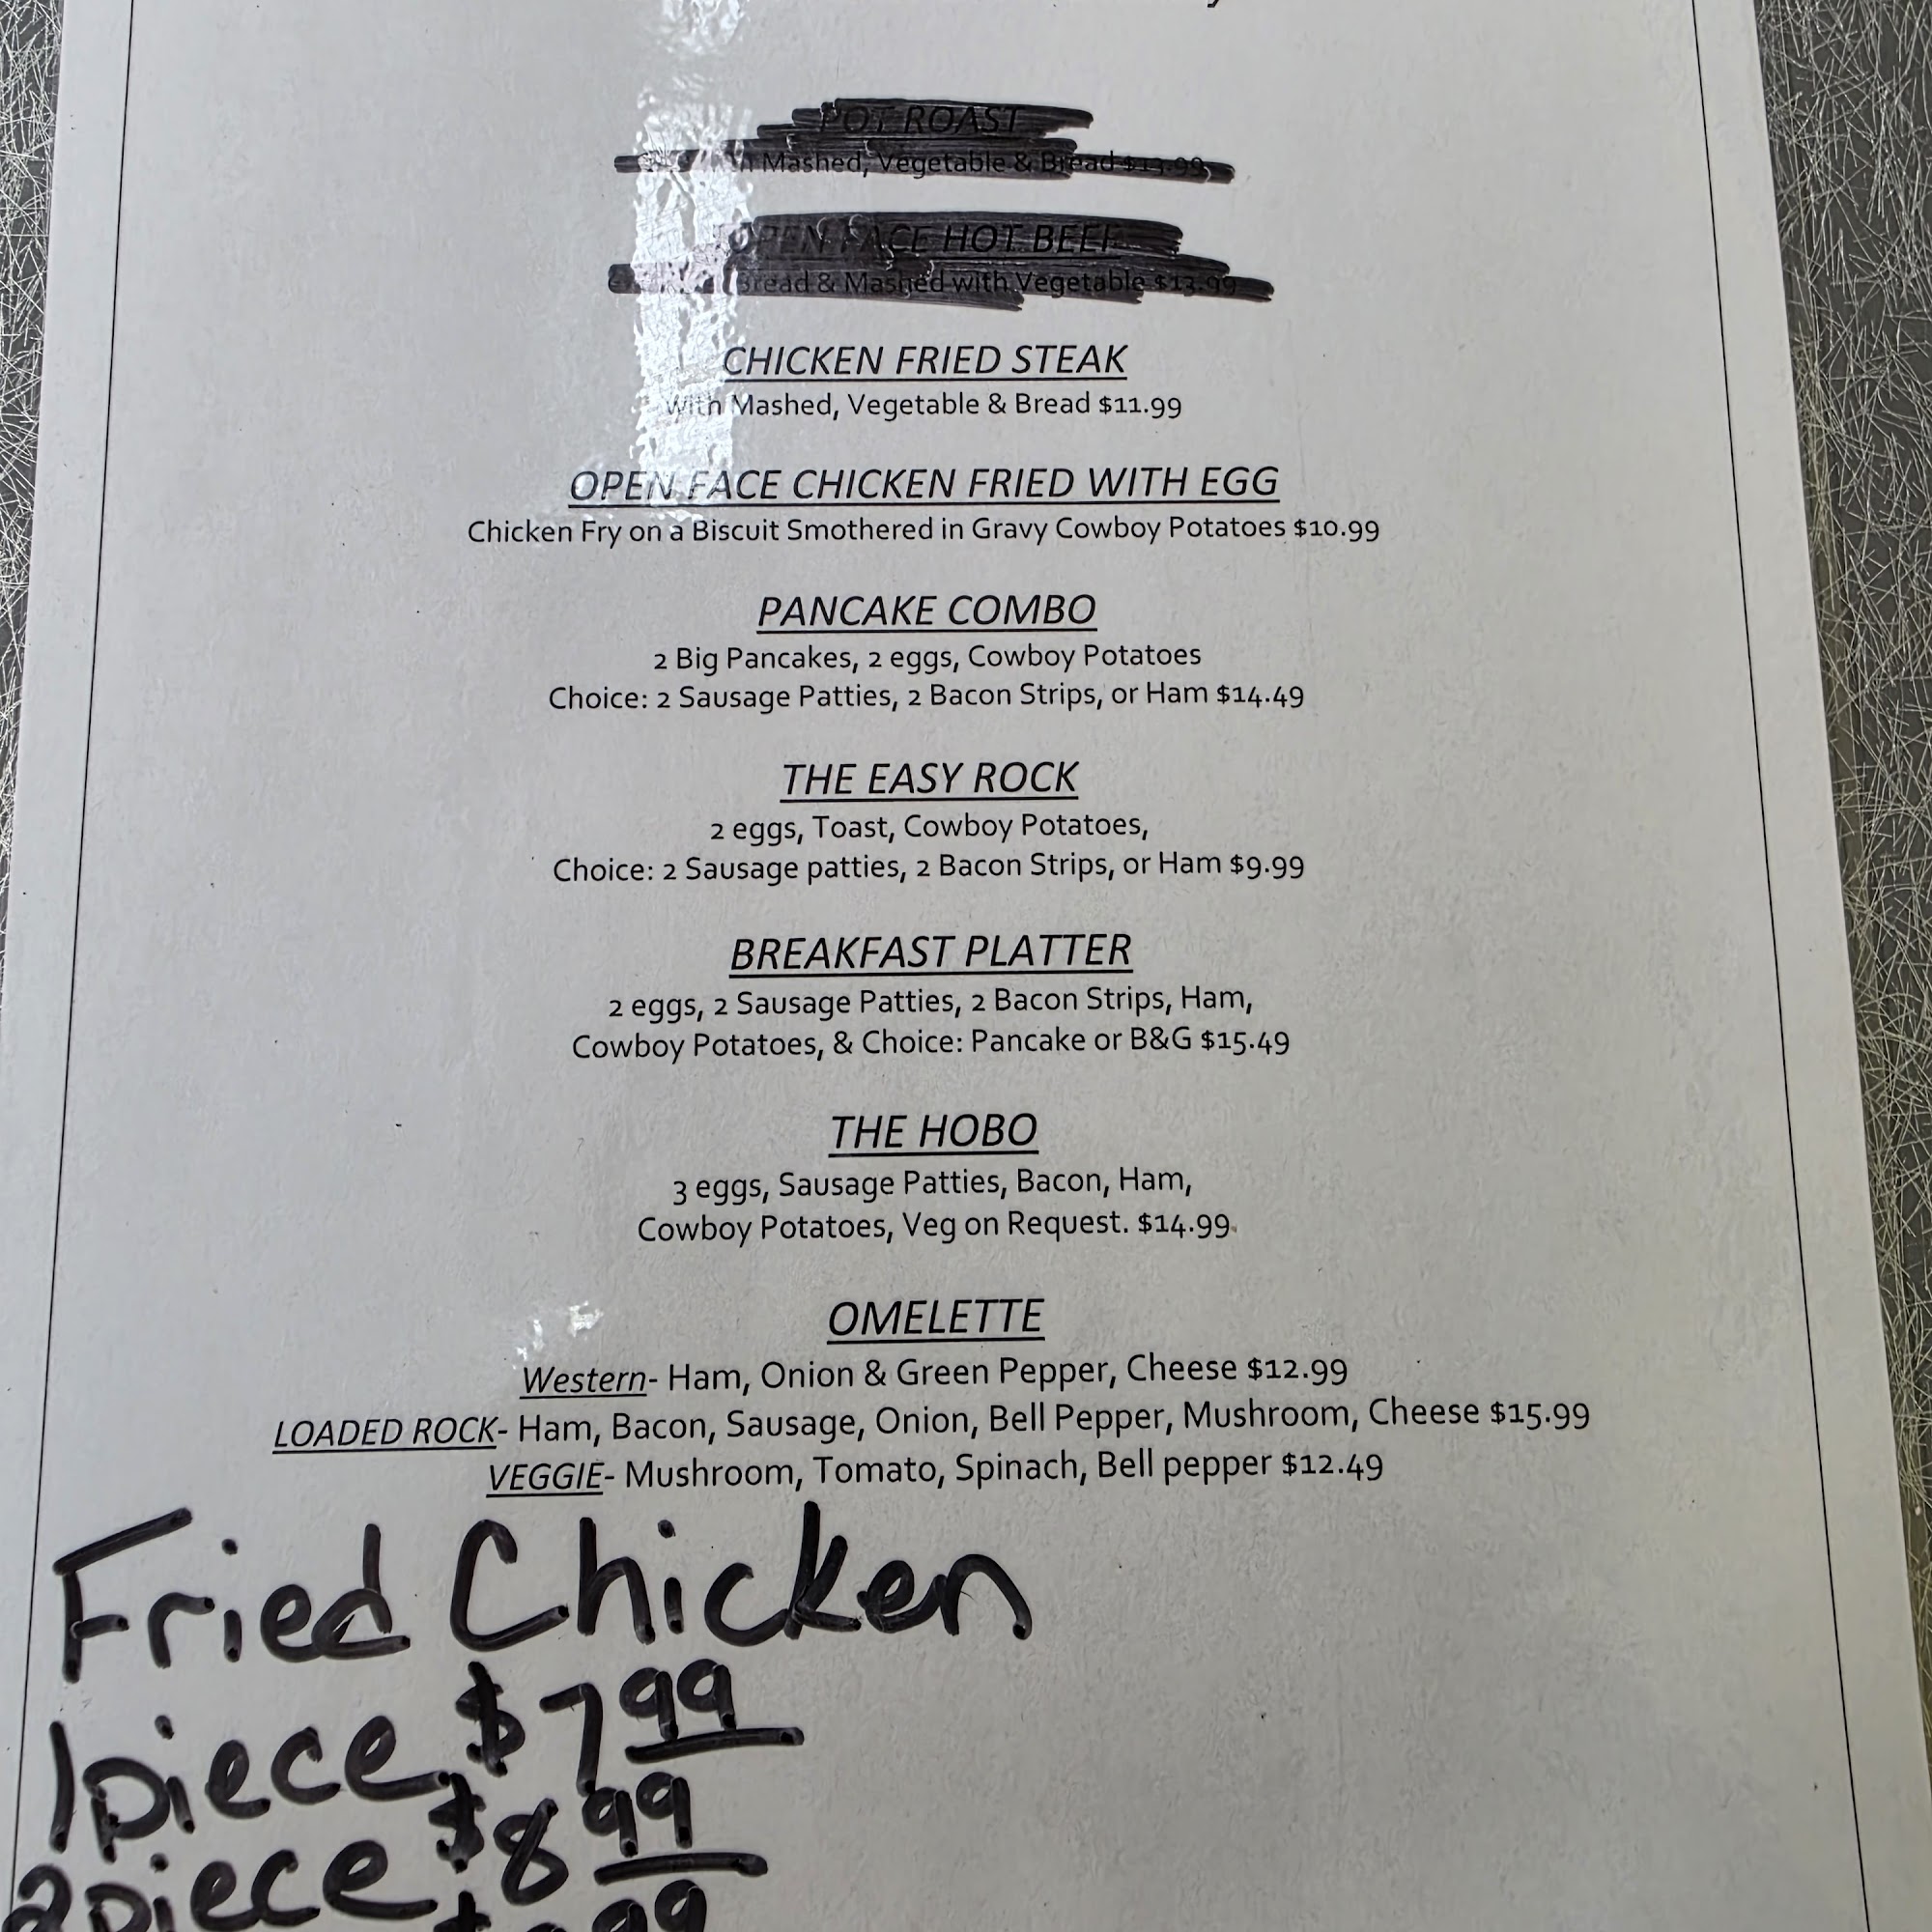 POT ROAST
Mashed, Vegetable & Bread $13.99
OPEN FACE HOT BEEF
Bread & Mashed with Vegetable $13.99
CHICKEN FRIED STEAK
With Mashed, Vegetable & Bread $11.99
OPEN FACE CHICKEN FRIED WITH EGG
Chicken Fry on a Biscuit Smothered in Gravy Cowboy Potatoes $10.99
PANCAKE COMBO
2 Big Pancakes, 2 eggs, Cowboy Potatoes
Choice: 2 Sausage Patties, 2 Bacon Strips, or Ham $14.49
THE EASY ROCK
2 eggs, Toast, Cowboy Potatoes,
Choice: 2 Sausage patties, 2 Bacon Strips, or Ham $9.99
BREAKFAST PLATTER
2 eggs, 2 Sausage Patties, 2 Bacon Strips, Ham,
Cowboy Potatoes, & Choice: Pancake or B&G $15.49
THE HOBO
3 eggs, Sausage Patties, Bacon, Ham,
Cowboy Potatoes, Veg on Request. $14.99
OMELETTE
Western- Ham, Onion & Green Pepper, Cheese $12.99
LOADED ROCK- Ham, Bacon, Sausage, Onion, Bell Pepper, Mushroom, Cheese $15.99
VEGGIE- Mushroom, Tomato, Spinach, Bell pepper $12.49
Fried Chicken
1 piece $7 99
2 piece $8 99